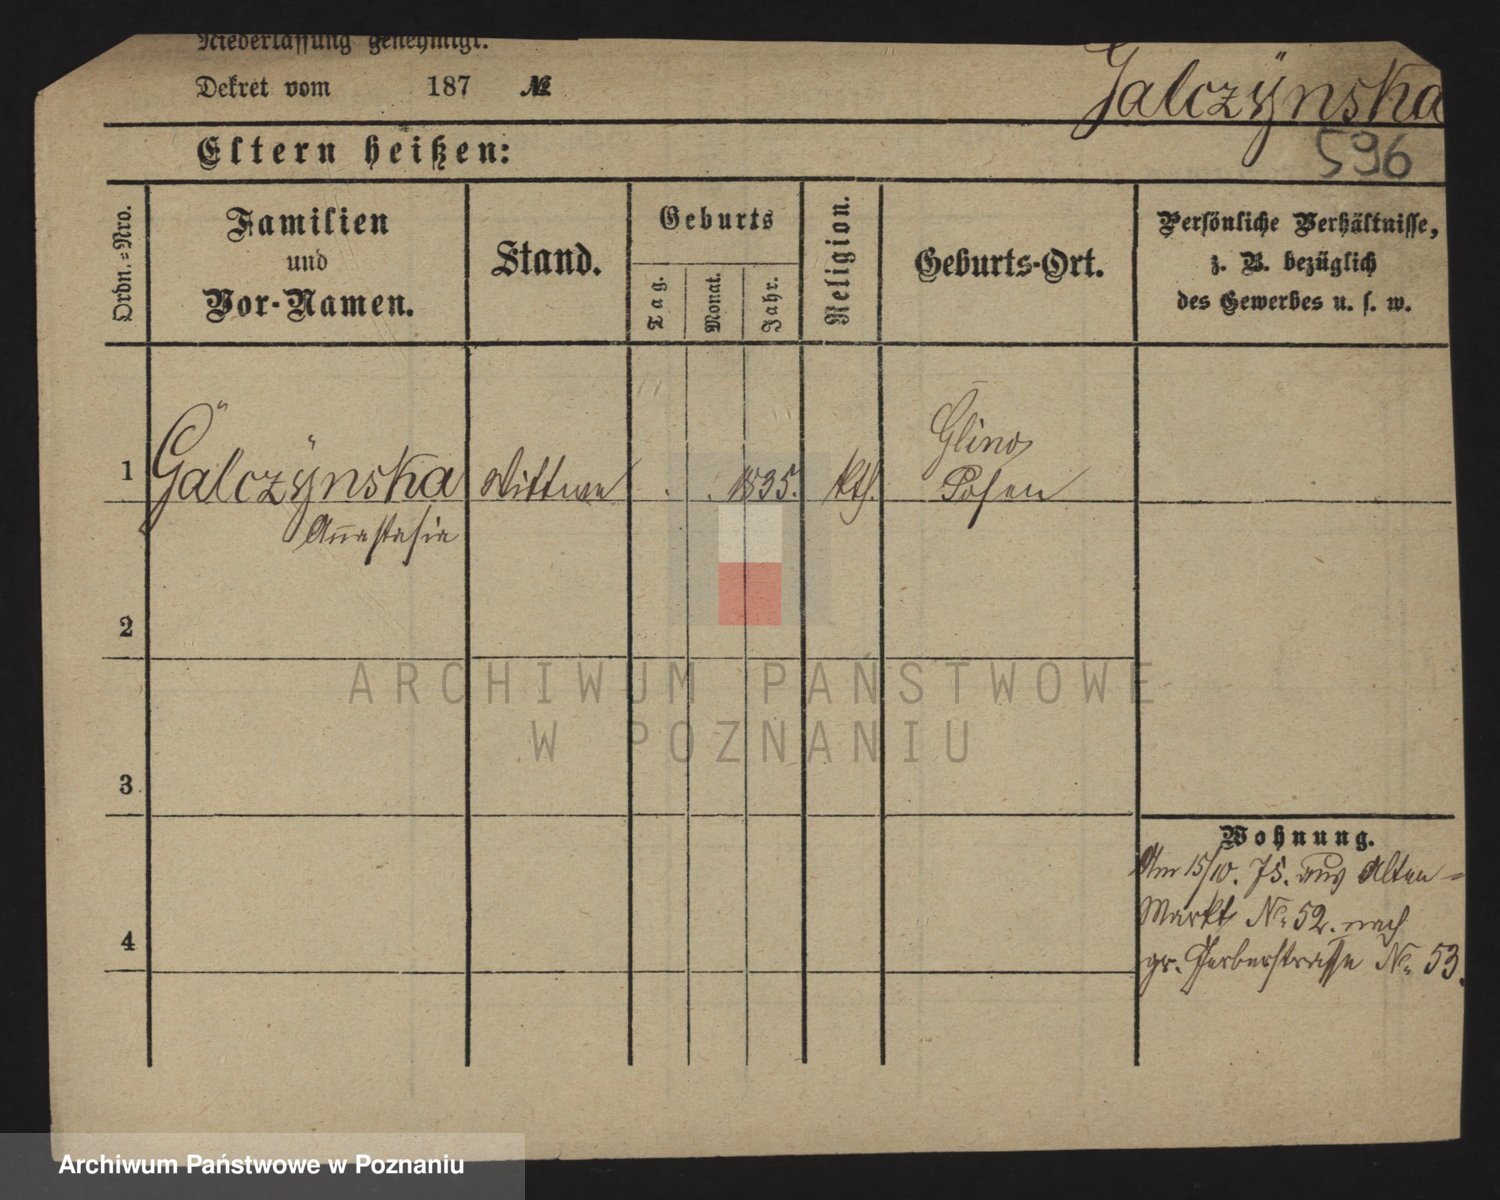 Niederlassung genehmigt.
Dekret vom 187 №
Galczÿnska
596
Eltern heißen:
Ordn.=Nro.
Familien
und
Vor-Namen.
Stand.
Geburts
Tag.
Monat.
Jahr.
Religion.
Geburts-Ort.
Persönliche Verhältnisse,
z. B. bezüglich
des Gewerbes u. s. w.
Glino
1 Galczÿnska Wittwe . . 1835. kth. Posen
Anastasia
2
3
4
Wohnung.
Am 15/10. 75. aus Alten-
Markt No 52. nach
gr. Gerberstrasse No 53.
ARCHIWUM PAŃSTWOWE
W POZNANIU
Archiwum Państwowe w Poznaniu